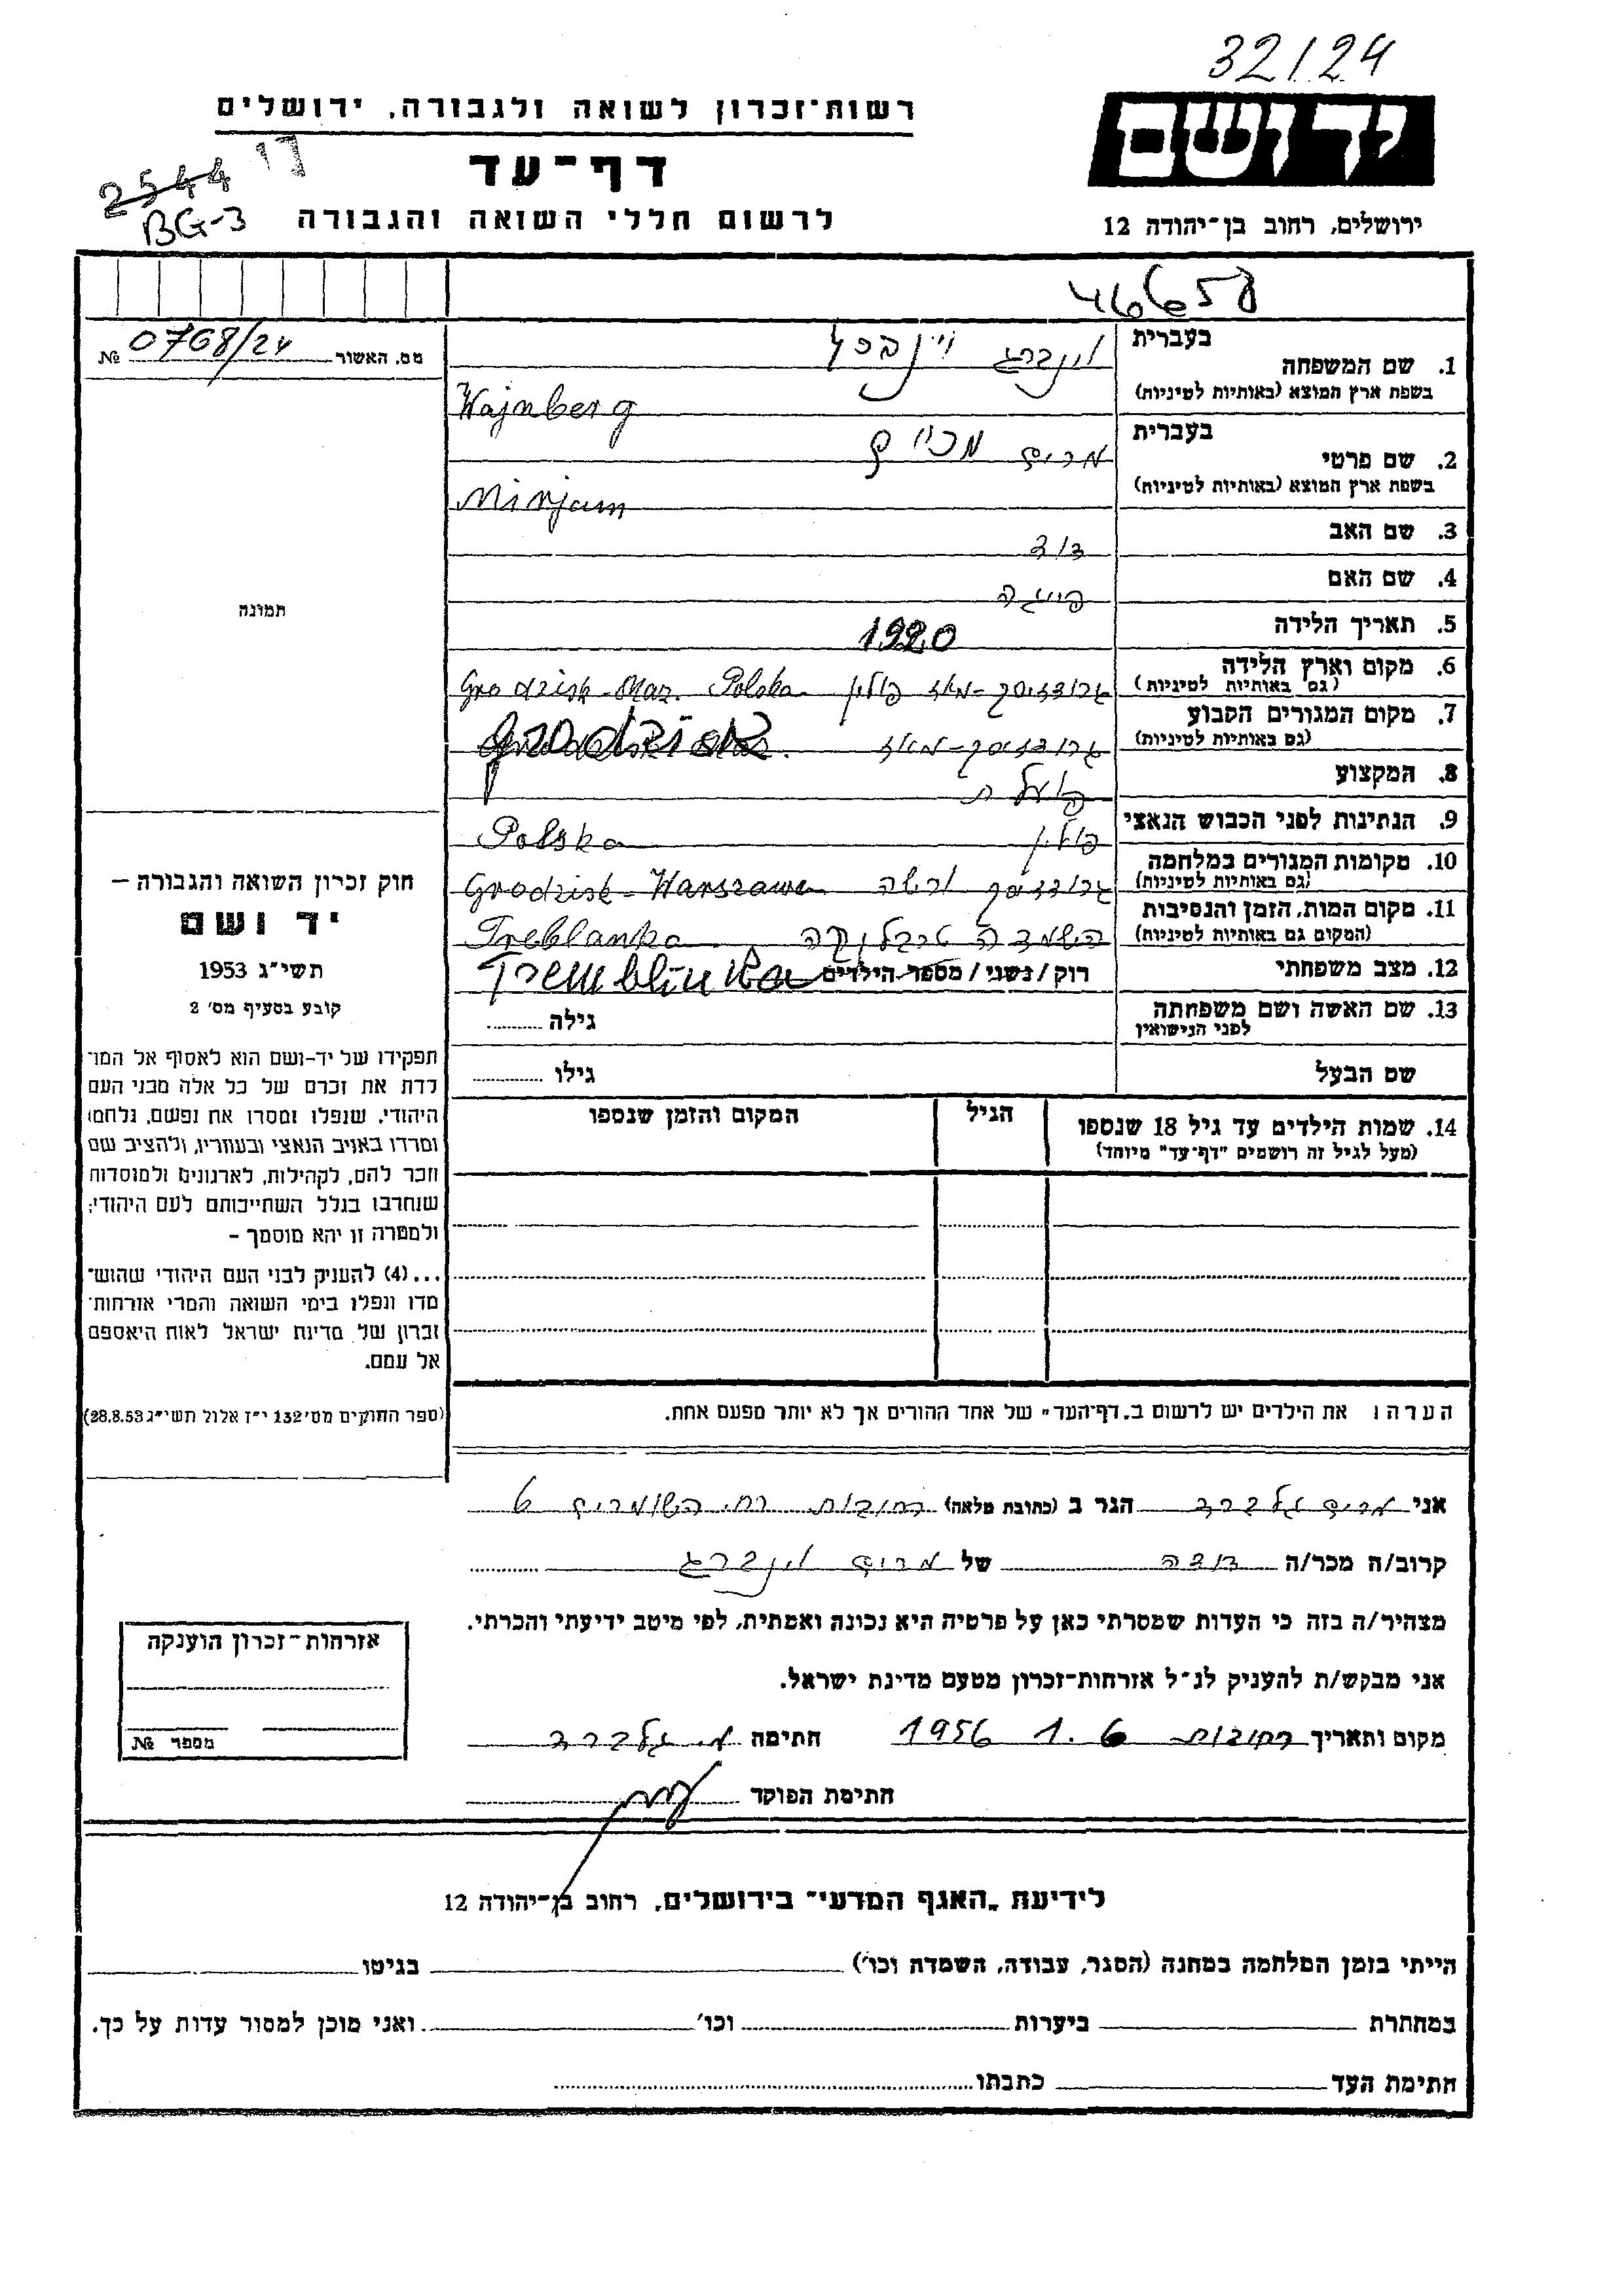 32/24
רשות-זכרון לשואה ולגבורה, ירושלים
יד ושם
דף-עד
2544
BG-3
לרשום חללי השואה והגבורה
ירושלים, רחוב בן-יהודה 12
46658
מס. האשור 0768/24 №
בעברית
1. שם המשפחה וינברג
בשפת ארץ המוצא (באותיות לטיניות) Wajnberg
בעברית
2. שם פרטי מרים מרים
בשפת ארץ המוצא (באותיות לטיניות) Mirjam
3. שם האב דוד
4. שם האם פייגה
5. תאריך הלידה 1920
6. מקום וארץ הלידה גרודזיסק-מאז פולין Grodzisk-Maz. Polska
(גם באותיות לטיניות)
7. מקום המגורים הקבוע גרודזיסק-מאז
(גם באותיות לטיניות)
8. המקצוע פועלת
9. הנתינות לפני הכבוש הנאצי פולין Polska
10. מקומות המגורים במלחמה גרודזיסק ורשה Grodzisk-Warszawa
(גם באותיות לטיניות)
11. מקום המות, הזמן והנסיבות השמדה טרבלינקה Treblanka
(המקום גם באותיות לטיניות)
12. מצב משפחתי רוק/נשוי/מספר הילדים Tremblinka
13. שם האשה ושם משפחתה גילה
לפני הנישואין
שם הבעל גילו
14. שמות הילדים עד גיל 18 שנספו הגיל המקום והזמן שנספו
(מעל לגיל זה רושמים "דף-עד" מיוחד)
הערה: את הילדים יש לרשום ב„דף-העד" של אחד ההורים אך לא יותר מפעם אחת.
תמונה
חוק זכרון השואה והגבורה –
יד ושם
תשי"ג 1953
קובע בסעיף מס׳ 2
תפקידו של יד-ושם הוא לאסוף אל המו־
לדת את זכרם של כל אלה מבני העם
היהודי, שנפלו ומסרו את נפשם, נלחמו
ומרדו באויב הנאצי ובעוזריו, ולהציב שם
וזכר להם, לקהילות, לארגונים ולמוסדות
שנחרבו בגלל השתייכותם לעם היהודי;
ולמטרה זו יהא מוסמך –
...(4) להעניק לבני העם היהודי שהוש־
מדו ונפלו בימי השואה והמרי אזרחות־
זכרון של מדינת ישראל לאות היאספם
אל עמם.
(ספר החוקים מס׳ 132 י"ז אלול תשי"ג 28.8.53)
אני מרים גלברד הגר ב (כתובת מלאה) רחובות רח. השומרים 6
קרוב/ה מכר/ה דודה של מרים וינברג
מצהיר/ה בזה כי העדות שמסרתי כאן על פרטיה היא נכונה ואמתית, לפי מיטב ידיעתי והכרתי.
אני מבקש/ת להעניק לנ"ל אזרחות-זכרון מטעם מדינת ישראל.
מקום ותאריך רחובות 1.6 1956 חתימה מ. גלברד
חתימת הפוקד
אזרחות-זכרון הוענקה
מספר №
לידיעת „האגף המדעי" בירושלים, רחוב בן-יהודה 12
הייתי בזמן המלחמה במחנה (הסגר, עבודה, השמדה וכו׳) בגיטו
במחתרת ביערות וכו׳ ואני מוכן למסור עדות על כך.
חתימת העד כתבתו